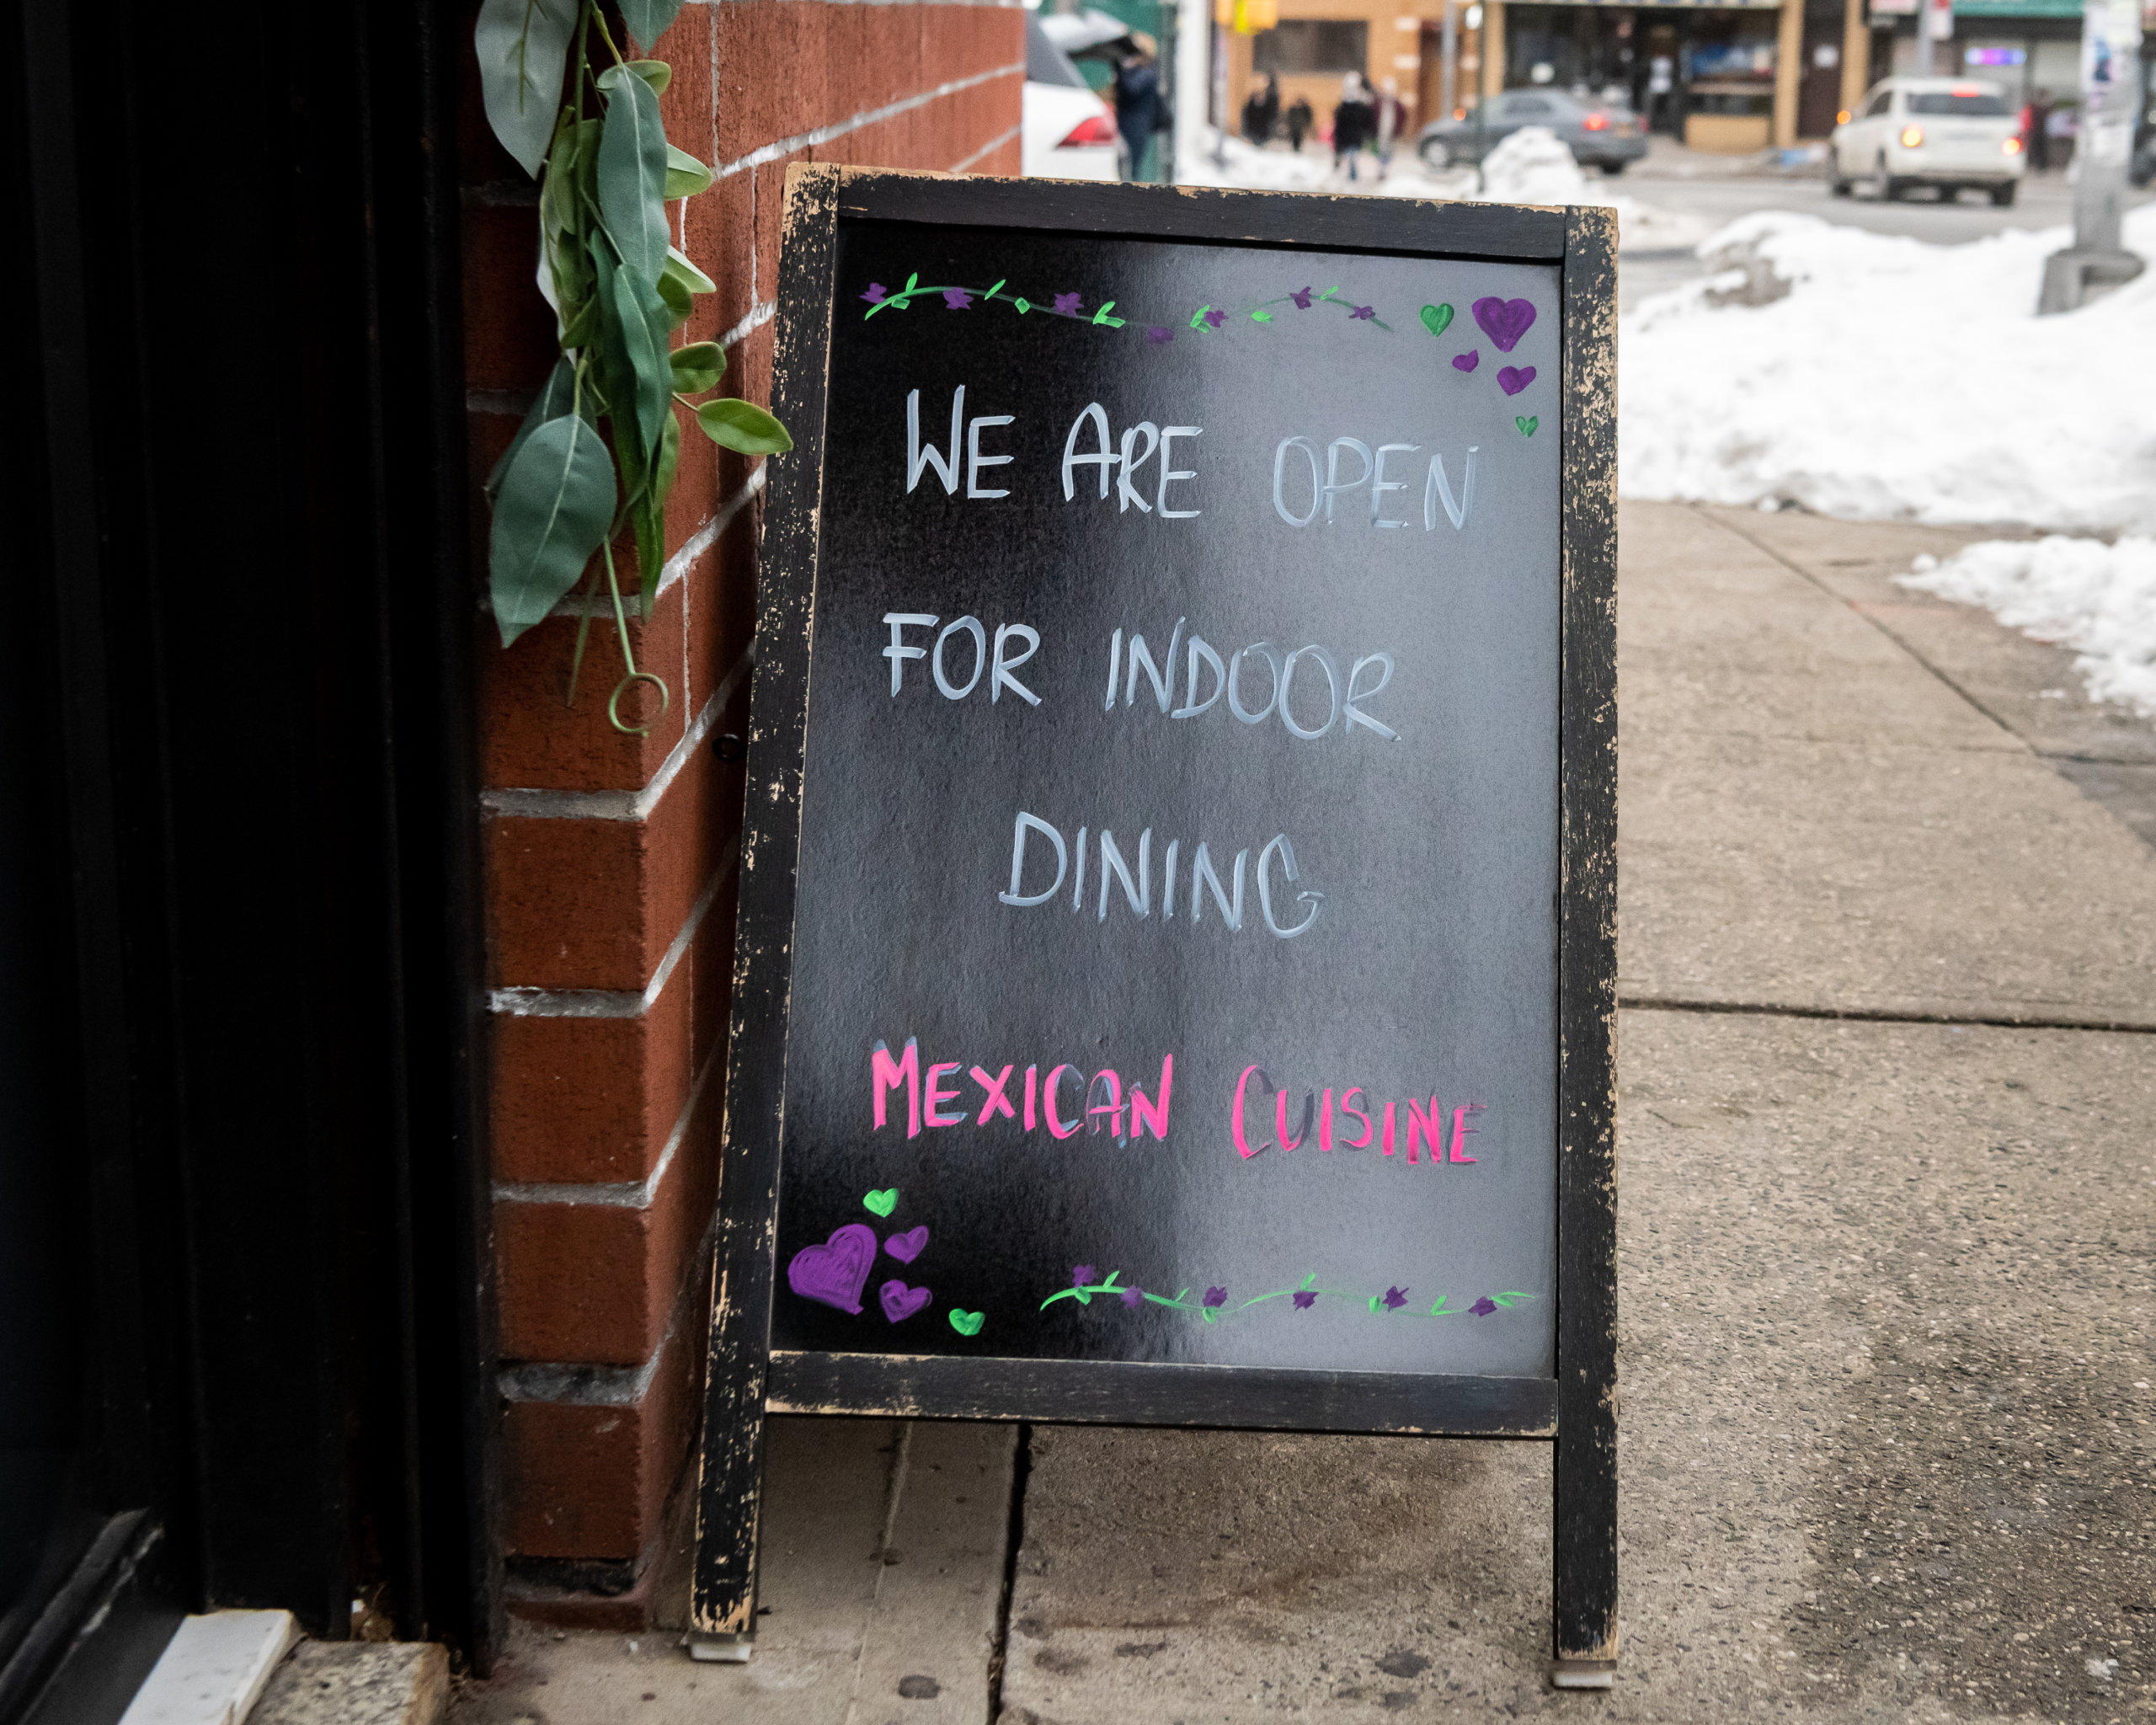 WE ARE OPEN
FOR INDOOR
DINING
MEXICAN CUISINE